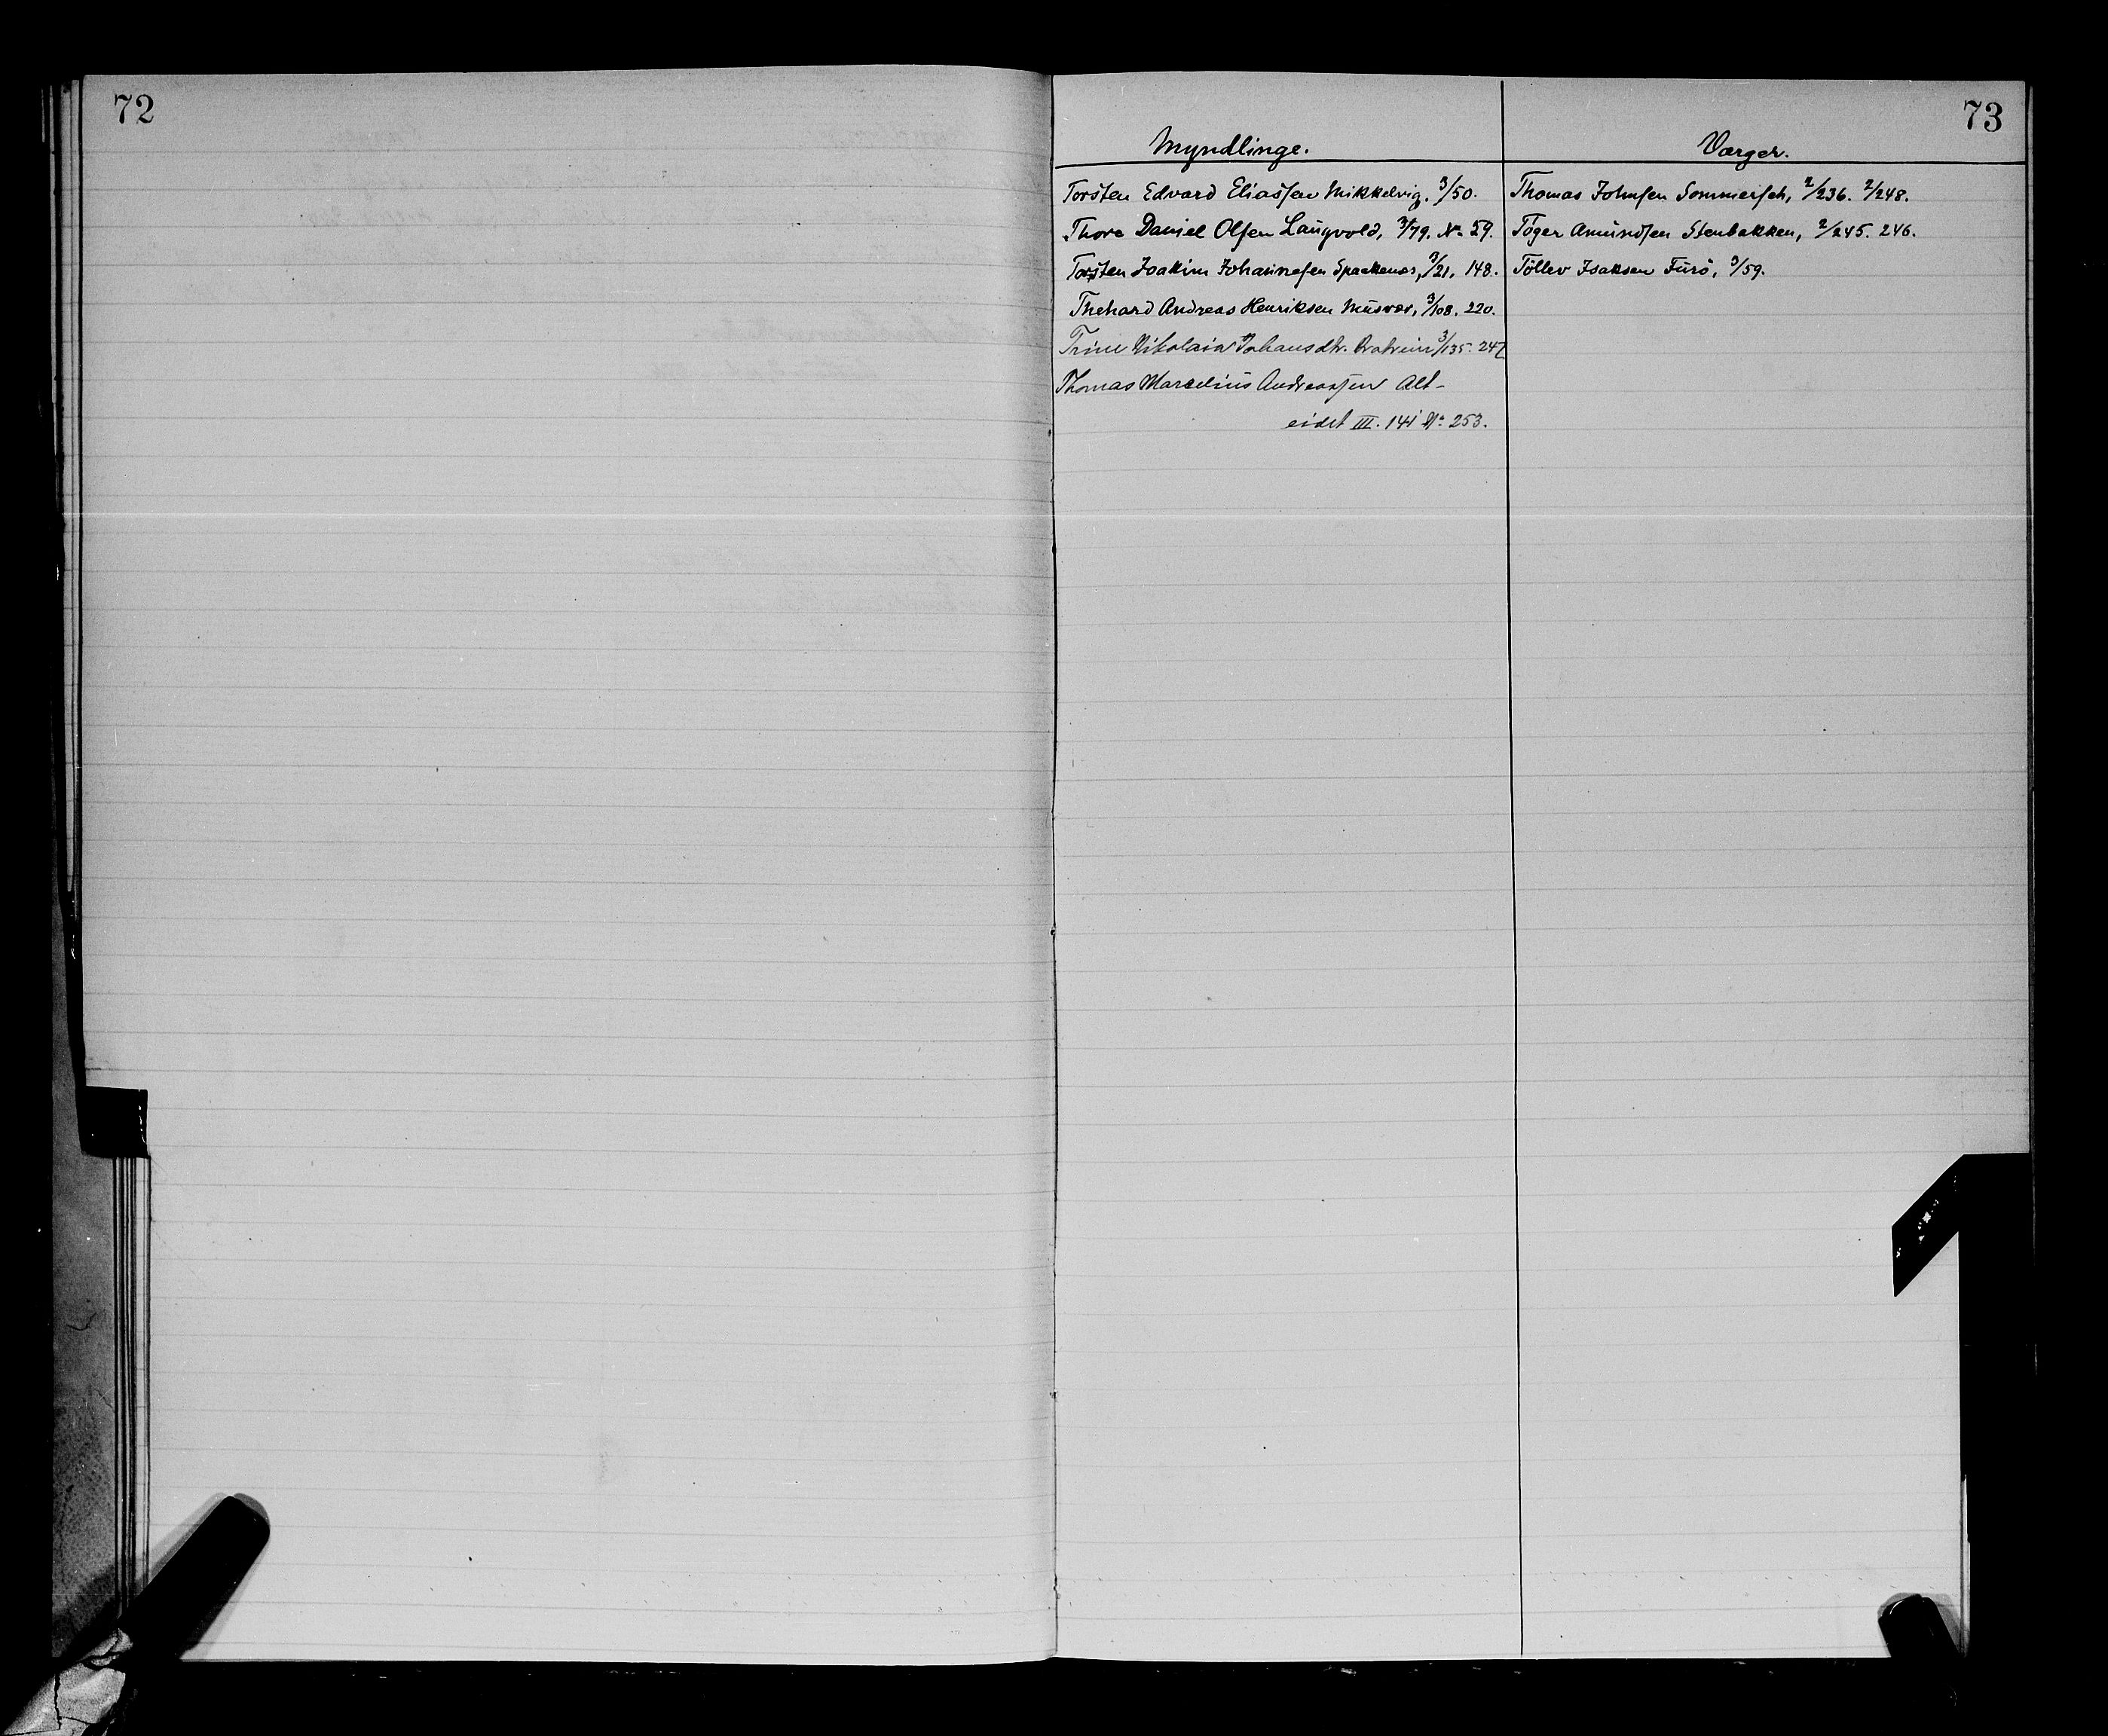 72
73
Myndlinge.
Værger.
Torsten Edvard Eliassen Mikkelvig. 3/50.
Thore Daniel Olsen Laugvold, 3/79. No 59.
Torsten Joakim Johannesen Spaakenes, 3/21, 148.
Thehard Andreas Henriksen Musvær, 3/108. 220.
Trine Nikolaia Johansdtr. 3/135. 247
Thomas Marcelius Andreassen Alt-
eidet III. 141 No 253.
Thomas Johnsen Sommerseh, 2/236. 2/248.
Töger Amundsen Stenbakken, 2/245. 246.
Töllev Isaksen Furö, 3/59.